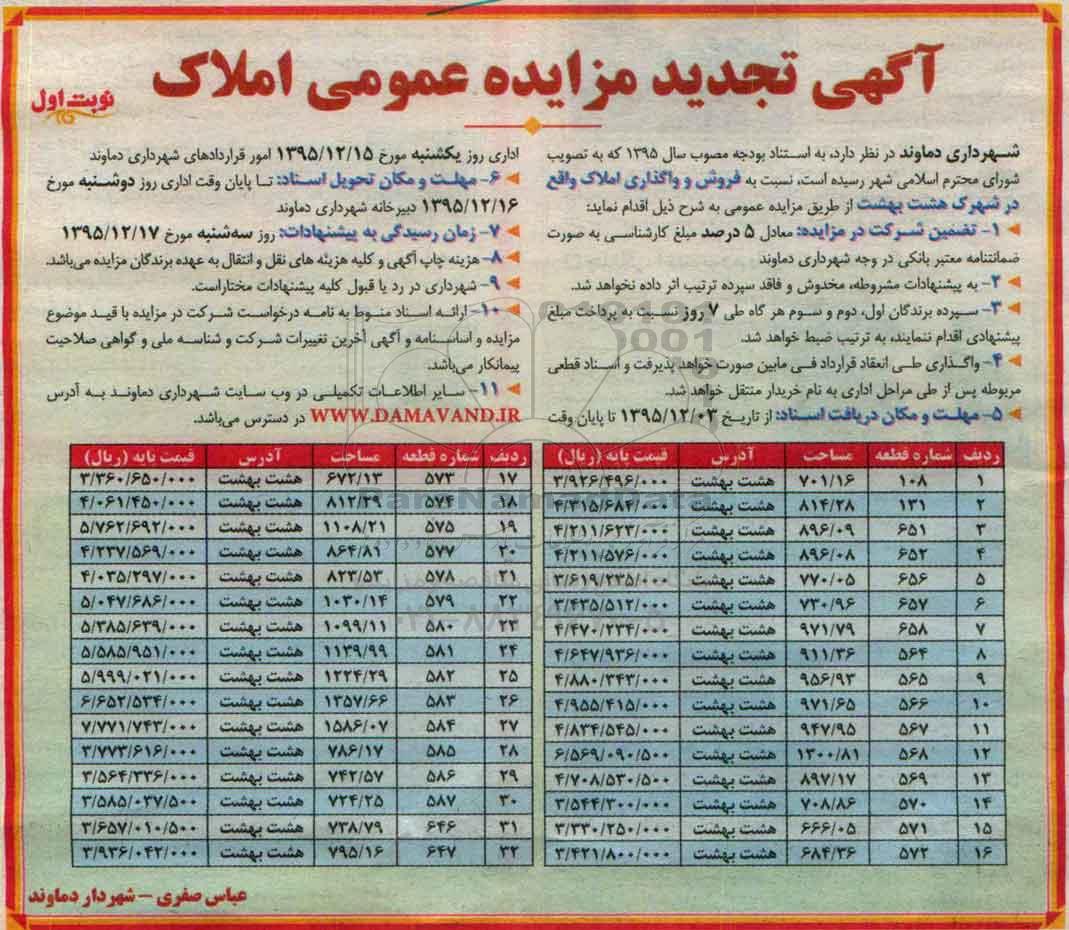 آگهی تجدید مزایده عمومی املاک
نوبت اول
شهرداری دماوند در نظر دارد، به استناد بودجه مصوب سال ۱۳۹۵ که به تصویب
شورای محترم اسلامی شهر رسیده است، نسبت به فروش و واگذاری املاک واقع
در شهرک هشت بهشت از طریق مزایده عمومی به شرح ذیل اقدام نماید:
۱- تضمین شرکت در مزایده: معادل ۵ درصد مبلغ کارشناسی به صورت
ضمانتنامه معتبر بانکی در وجه شهرداری دماوند
۲- به پیشنهادات مشروطه، مخدوش و فاقد سپرده ترتیب اثر داده نخواهد شد.
۳- سپرده برندگان اول، دوم و سوم هر گاه طی ۷ روز نسبت به پرداخت مبلغ
پیشنهادی اقدام ننمایند، به ترتیب ضبط خواهد شد.
۴- واگذاری طی انعقاد قرارداد فی مابین صورت خواهد پذیرفت و اسناد قطعی
مربوطه پس از طی مراحل اداری به نام خریدار منتقل خواهد شد.
۵- مهلت و مکان دریافت اسناد: از تاریخ ۱۳۹۵/۱۲/۰۳ تا پایان وقت
اداری روز یکشنبه مورخ ۱۳۹۵/۱۲/۱۵ امور قراردادهای شهرداری دماوند
۶- مهلت و مکان تحویل اسناد: تا پایان وقت اداری روز دوشنبه مورخ
۱۳۹۵/۱۲/۱۶ دبیرخانه شهرداری دماوند
۷- زمان رسیدگی به پیشنهادات: روز سه‌شنبه مورخ ۱۳۹۵/۱۲/۱۷
۸- هزینه چاپ آگهی و کلیه هزینه های نقل و انتقال به عهده برندگان مزایده می‌باشد.
۹- شهرداری در رد یا قبول کلیه پیشنهادات مختاراست.
۱۰- ارائه اسناد منوط به نامه درخواست شرکت در مزایده با قید موضوع
مزایده و اساسنامه و آگهی آخرین تغییرات شرکت و شناسه ملی و گواهی صلاحیت
پیمانکار می‌باشد.
۱۱- سایر اطلاعات تکمیلی در وب سایت شهرداری دماوند به آدرس
WWW.DAMAVAND.IR در دسترس می‌باشد.
ردیف شماره قطعه مساحت آدرس قیمت پایه (ریال)
۱ ۱۰۸ ۷۰۱/۱۶ هشت بهشت ۳/۹۲۶/۴۹۶/۰۰۰
۲ ۱۳۱ ۸۱۴/۲۸ هشت بهشت ۴/۳۱۵/۶۸۴/۰۰۰
۳ ۶۵۱ ۸۹۶/۰۹ هشت بهشت ۴/۲۱۱/۶۲۳/۰۰۰
۴ ۶۵۲ ۸۹۶/۰۸ هشت بهشت ۴/۲۱۱/۵۷۶/۰۰۰
۵ ۶۵۶ ۷۷۰/۰۵ هشت بهشت ۳/۶۱۹/۲۳۵/۰۰۰
۶ ۶۵۷ ۷۳۰/۹۶ هشت بهشت ۳/۴۳۵/۵۱۲/۰۰۰
۷ ۶۵۸ ۹۷۱/۷۹ هشت بهشت ۴/۴۷۰/۲۳۴/۰۰۰
۸ ۵۶۴ ۹۱۱/۳۶ هشت بهشت ۴/۶۴۷/۹۳۶/۰۰۰
۹ ۵۶۵ ۹۵۶/۹۳ هشت بهشت ۴/۸۸۰/۳۴۳/۰۰۰
۱۰ ۵۶۶ ۹۷۱/۶۵ هشت بهشت ۴/۹۵۵/۴۱۵/۰۰۰
۱۱ ۵۶۷ ۹۴۷/۹۵ هشت بهشت ۴/۸۳۴/۵۴۵/۰۰۰
۱۲ ۵۶۸ ۱۳۰۰/۸۱ هشت بهشت ۶/۵۶۹/۰۹۰/۵۰۰
۱۳ ۵۶۹ ۸۹۷/۱۷ هشت بهشت ۴/۷۰۸/۵۳۰/۵۰۰
۱۴ ۵۷۰ ۷۰۸/۸۶ هشت بهشت ۳/۵۴۴/۳۰۰/۰۰۰
۱۵ ۵۷۱ ۶۶۶/۰۵ هشت بهشت ۳/۳۳۰/۲۵۰/۰۰۰
۱۶ ۵۷۲ ۶۸۴/۳۶ هشت بهشت ۳/۴۲۱/۸۰۰/۰۰۰
ردیف شماره قطعه مساحت آدرس قیمت پایه (ریال)
۱۷ ۵۷۳ ۶۷۲/۱۳ هشت بهشت ۳/۳۶۰/۶۵۰/۰۰۰
۱۸ ۵۷۴ ۸۱۲/۲۹ هشت بهشت ۴/۰۶۱/۴۵۰/۰۰۰
۱۹ ۵۷۵ ۱۱۰۸/۲۱ هشت بهشت ۵/۷۶۲/۶۹۲/۰۰۰
۲۰ ۵۷۷ ۸۶۴/۸۱ هشت بهشت ۴/۲۳۷/۵۶۹/۰۰۰
۲۱ ۵۷۸ ۸۲۳/۵۳ هشت بهشت ۴/۰۳۵/۲۹۷/۰۰۰
۲۲ ۵۷۹ ۱۰۳۰/۱۴ هشت بهشت ۵/۰۴۷/۶۸۶/۰۰۰
۲۳ ۵۸۰ ۱۰۹۹/۱۱ هشت بهشت ۵/۳۸۵/۶۳۹/۰۰۰
۲۴ ۵۸۱ ۱۱۳۹/۹۹ هشت بهشت ۵/۵۸۵/۹۵۱/۰۰۰
۲۵ ۵۸۲ ۱۲۲۴/۲۹ هشت بهشت ۵/۹۹۹/۰۲۱/۰۰۰
۲۶ ۵۸۳ ۱۳۵۷/۶۶ هشت بهشت ۶/۶۵۲/۵۳۴/۰۰۰
۲۷ ۵۸۴ ۱۵۸۶/۰۷ هشت بهشت ۷/۷۷۱/۷۴۳/۰۰۰
۲۸ ۵۸۵ ۷۸۶/۱۷ هشت بهشت ۳/۷۷۳/۶۱۶/۰۰۰
۲۹ ۵۸۶ ۷۴۲/۵۷ هشت بهشت ۳/۵۶۴/۳۳۶/۰۰۰
۳۰ ۵۸۷ ۷۲۴/۲۵ هشت بهشت ۳/۵۸۵/۰۳۷/۵۰۰
۳۱ ۶۴۶ ۷۳۸/۷۹ هشت بهشت ۳/۶۵۷/۰۱۰/۵۰۰
۳۲ ۶۴۷ ۷۹۵/۱۶ هشت بهشت ۳/۹۳۶/۰۴۲/۰۰۰
عباس صفری – شهردار دماوند